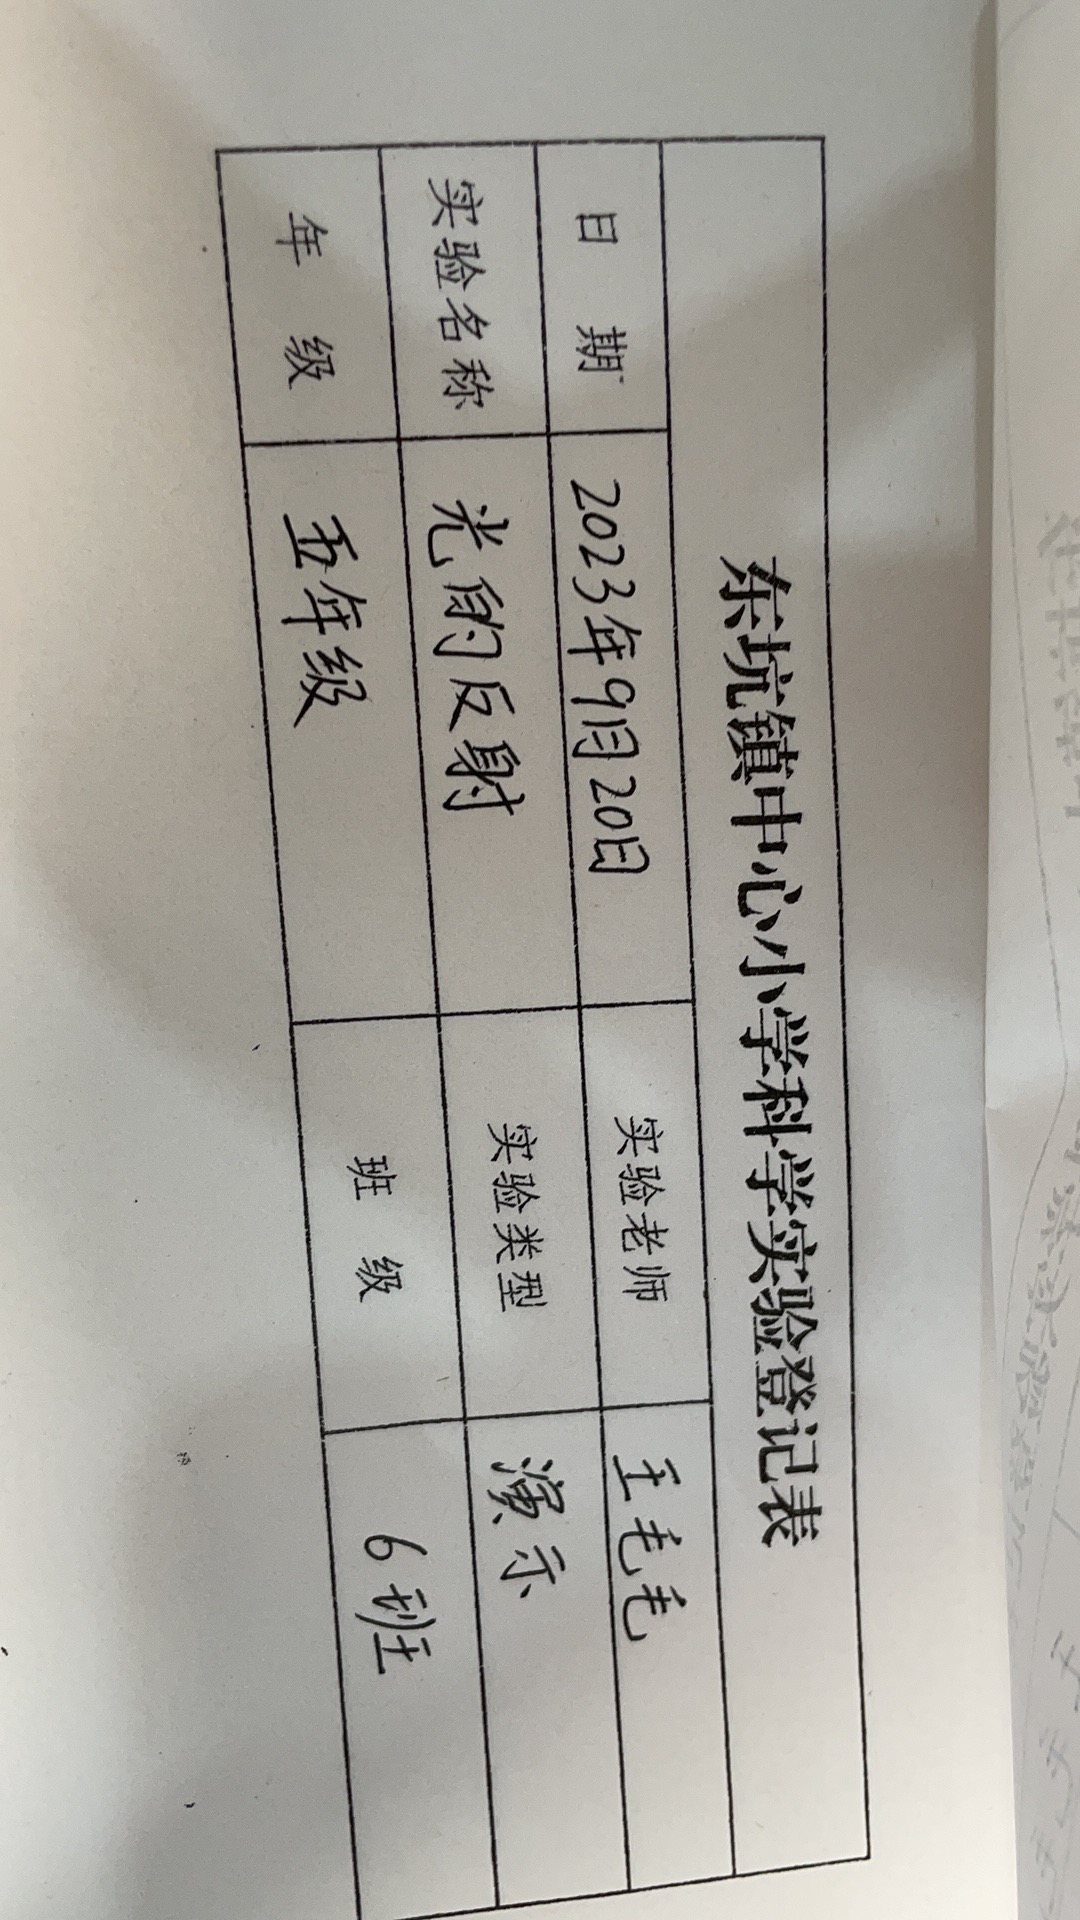 东坑镇中心小学科学实验登记表
日 期 2023年9月20日 实验老师 王毛毛
实验名称 光的反射 实验类型 演示
年 级 五年级 班 级 6班